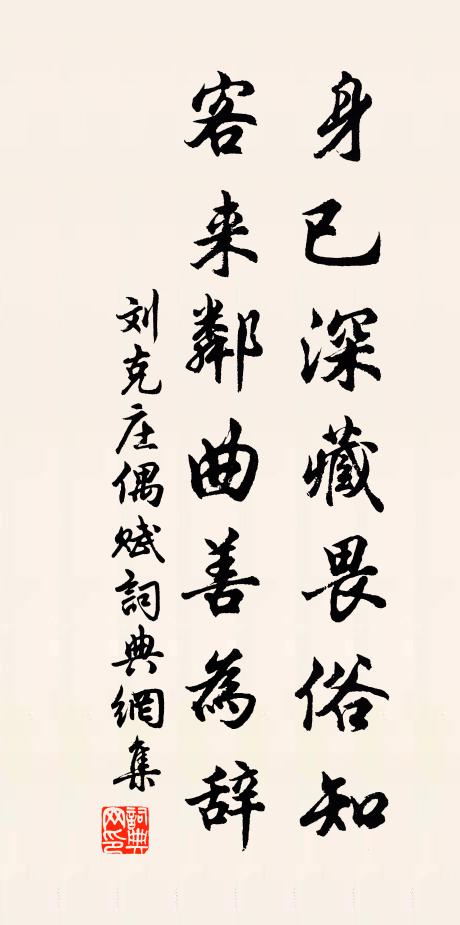 身已深藏畏俗知
客来鄰曲善為辞
刘克庄偶赋詞典網集
詞典网印